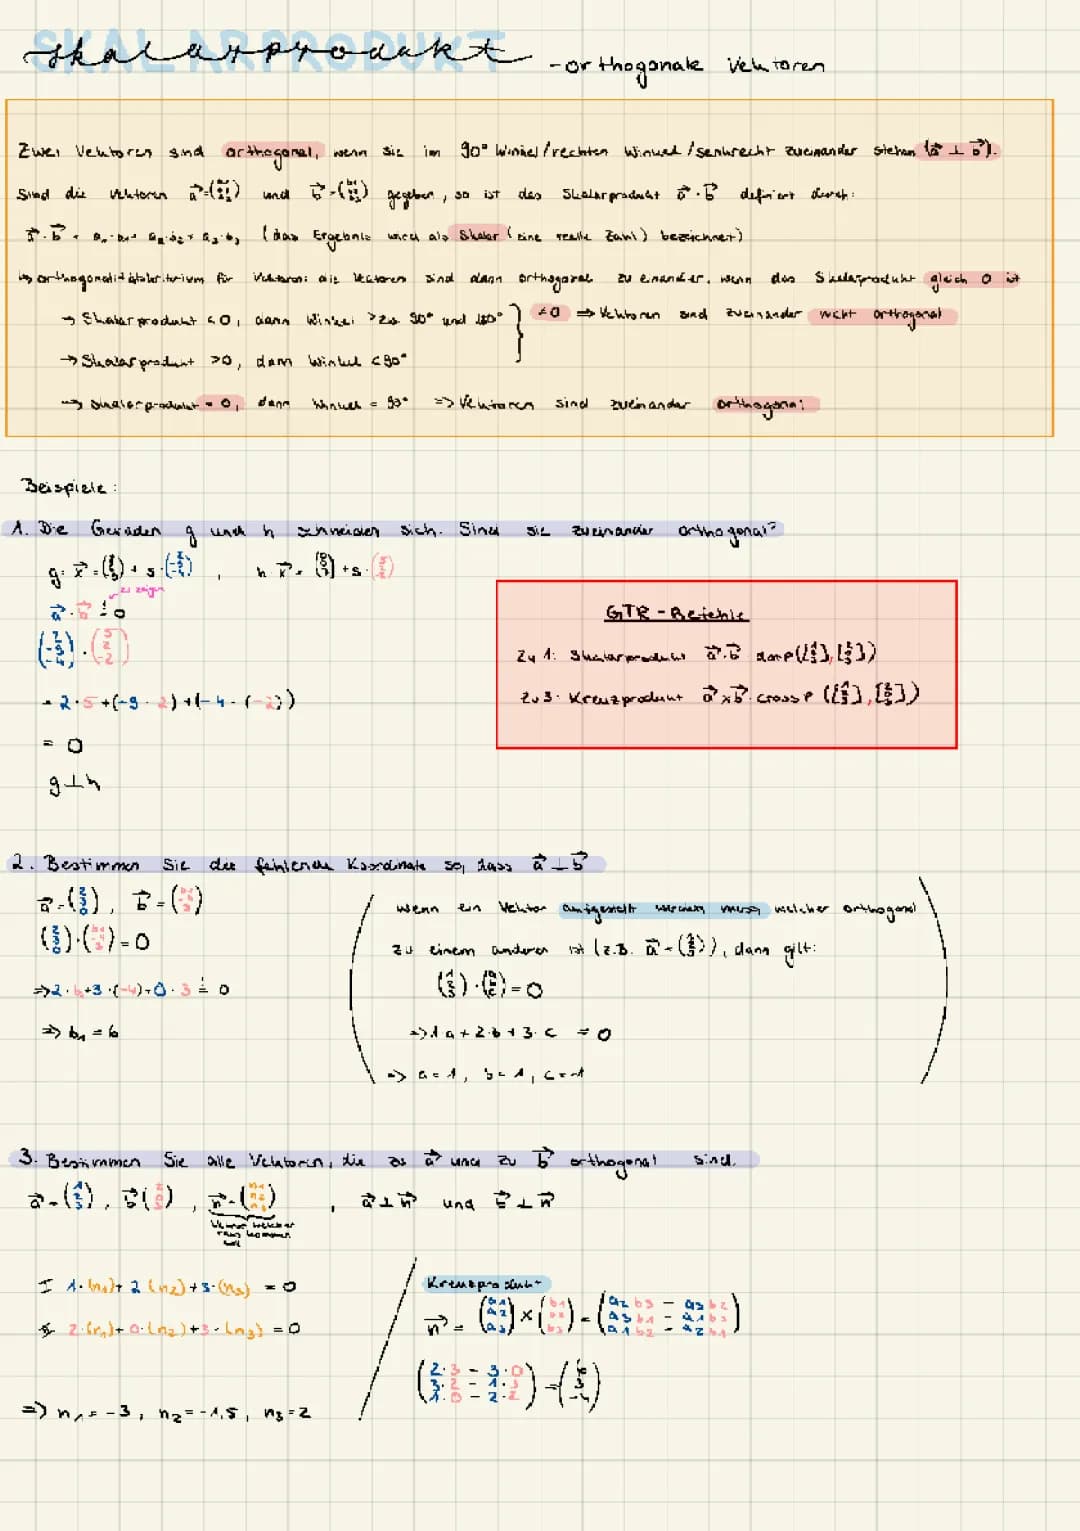 SKALARPRODUKT
skalarprodukt - orthogonale Vektoren
Zwei Vektoren sind orthogonal, wenn sie im 90° Winkel/rechten Winkel/senkrecht zueinander stehen (a ⊥ b).
Sind die Vektoren a = und b = gegeben, so ist das Skalarprodukt a · b definiert durch:
a · b = a₁·b₁ + a₂·b₂ + a₃·b₃ (das Ergebnis wird als Skalar (eine reelle Zahl) bezeichnet)
↳ orthogonalitätskriterium für Vektoren: die Vektoren sind dann orthogonal zu einander, wenn das Skalarprodukt gleich 0 ist
→ Skalarprodukt < 0, dann Winkel > 90° und 180° } ≠0 ⇒ Vektoren sind zueinander nicht orthogonal
→ Skalarprodukt > 0, dann Winkel < 90°
→ Skalarprodukt = 0, dann Winkel = 90° => Vektoren sind zueinander orthogonal
Beispiele:
1. Die Geraden g und h schneiden sich. Sind sie zueinander orthogonal?
g: x = + s · , h: x = + s ·
zu zeigen
a · b = 0
= 2·5 + (-9·2) + (-4·(-2))
= 0
g ⊥ h
GTR - Befehle
Zu 1: Skalarprodukt a·b dotP
Zu 3: Kreuzprodukt a×b: crossP
2. Bestimmen Sie die fehlende Koordinate so, dass a ⊥ b
a = (2 3 0), b = (b₁ -4 3)
(2 3 0) · (b₁ -4 3) = 0
⇒ 2·b₁ + 3·(-4) + 0·3 = 0
⇒ b₁ = 6
Wenn ein Vektor aufgestellt werden muss, welcher orthogonal
zu einem anderen ist (z.B. a = (1 2 3)), dann gilt:
(1 2 3) · (a b c) = 0
=> 1a + 2·b + 3·c = 0
=> a = 1, b = 1, c = -1
3. Bestimmen Sie alle Vektoren, die zu a und zu b orthogonal sind.
a = (1 2 3), b (2 0 3), n = (n₁ n₂ n₃), a ⊥ n und b ⊥ n
Vektor welcher raus kommen soll
I 1·(n₁) + 2(n₂) + 3·(n₃) = 0
2·(n₁) + 0·(n₂) + 3·(n₃) = 0
=> n₁ = -3, n₂ = -1,5, n₃ = 2
Kreuzprodukt
n = (a1 a2 a3) × (b1 b2 b3) = (a2 b3 - a3 b2 a3 b1 - a1 b3 a1 b2 - a2 b1)
(2·3 - 3·0 3·2 - 1·3 1·0 - 2·2) = (6 3 -4)